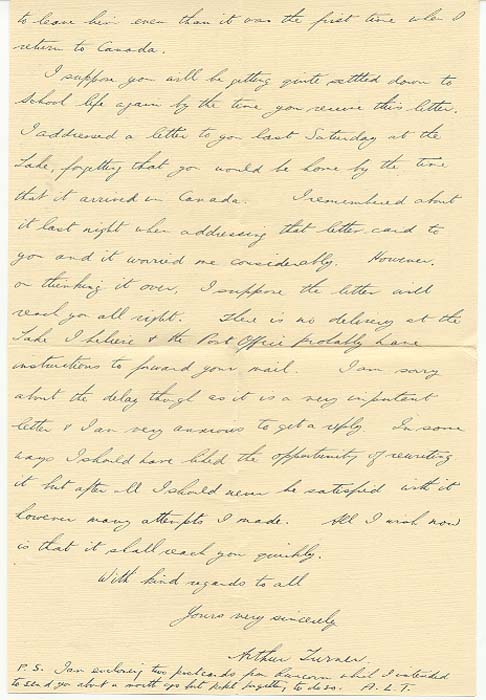 to leave him even than it was the first time when I
return to Canada.
I suppose you will be getting quite settled down to
School life again by the time you receive this letter.
I addressed a letter to you last Saturday at the
Lake, forgetting that you would be home by the time
that it arrived in Canada. I remembered about
it last night when addressing that letter-card to
you and it worried me considerably. However,
on thinking it over, I suppose the letter will
reach you all right. There is no delivery at the
Lake I believe & the Post Office probably have
instructions to forward your mail. I am sorry
about the delay though as it is a very important
letter & I am very anxious to get a reply. In some
ways I should have liked the opportunity of rewriting
it but after all I should never be satisfied with it
however many attempts I made. All I wish now
is that it shall reach you quickly.
With kind regards to all
Yours very sincerely
Arthur Turner.
P.S. I am enclosing two postcards from Runcorn which I intended
to send you about a month ago but kept forgetting to do so. A.L.T.